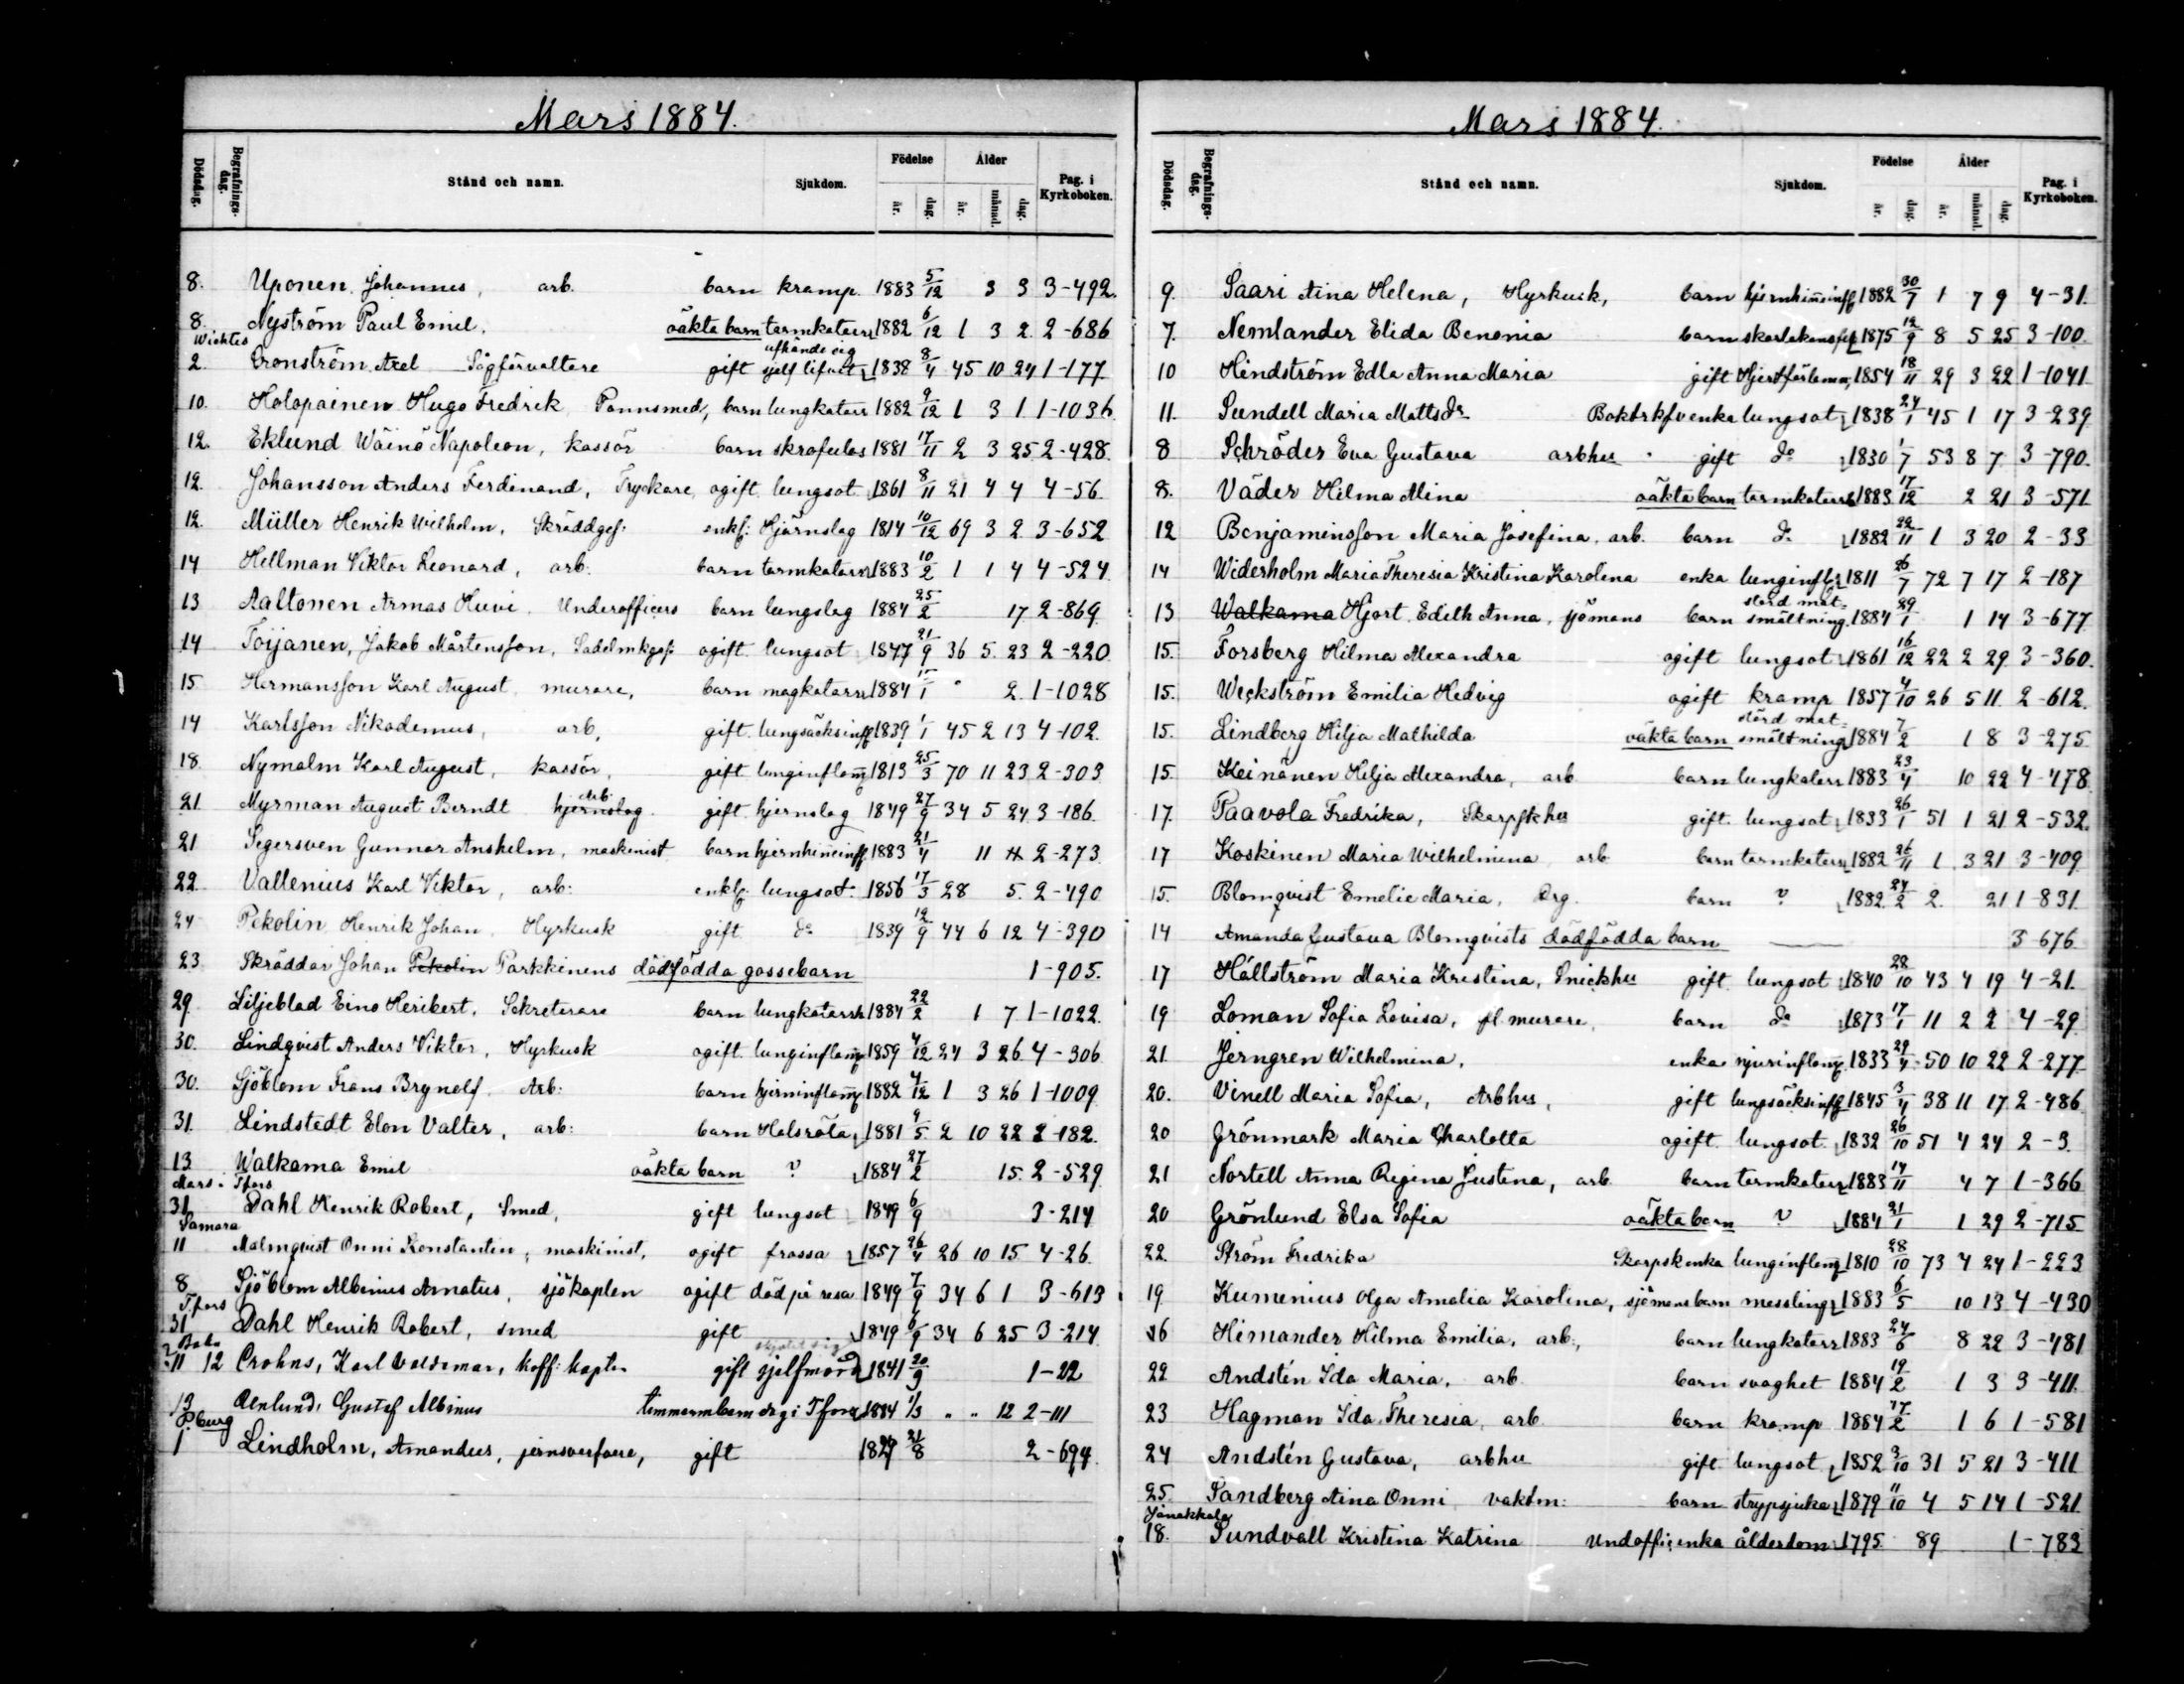 Mars 1884.
Dödsdag. Begrafnings-dag. Stånd och namn. Sjukdom. Födelse år. dag. Ålder år. månad. dag. Pag. i Kyrkoboken.
8. Uponen Johannes, arb. barn kramp. 1883 5/12 3 3 3-492.
8. Nyström Paul Emil. oäkta barn tarmkatarr 1882 6/12 1 3 2 2-686
Wichtis afhände sig
2. Cronström Axel Sågförvaltare gift sjelf lifvet 1838 8/4 45 10 24 1-177
10. Holopainen Hugo Fredrik Pannsmed, barn lungkatarr 1882 9/12 1 3 1 1-1036
12. Eklund Wäinö Napoleon, kassör barn skrofulos 1881 17/11 2 3 25 2-428
12. Johansson Anders Ferdinand, Tryckare, ogift lungsot 1861 8/11 21 4 4 4-56.
12. Müller Henrik Wilhelm, Skräddges: enkl: Hjärnslag 1814 10/12 69 3 2 3-652
14 Hellman Viktor Leonard, arb. barn tarmkatarr 1883 10/2 1 1 4 4-524
13 Aaltonen Armas Huvi, Underofficers barn lungslag 1884 25/2 17 2-869
14 Toijanen, Jakob Mårtensson, Sadelmkges: ogift lungsot 1847 21/9 36 5. 23 2-220
15 Hermansson Karl August, murare, barn magkatarr 1884 1 2. 1-1028
14 Karlsson Nikodemus, arb, gift. lungsäcksinfl 1839 1/1 45 2 13 4-102.
18. Nymalm Karl August, kassör, gift lunginflam 1813 25/3 70 11 23 2-303
21. Myrman August Berndt hjernslag arb gift hjernslag 1849 27/9 34 5 24 3-186.
21 Segersven Gunnar Anshelm, maskinist barn hjernhinneinfl 1883 21/4 11 2-273
22. Vallenius Karl Viktor, arb: enkl: lungsot. 1856 17/3 28 5. 2-490
24 Pekolin Henrik Johan, Hyrkusk gift do 1839 12/9 44 6 12 4-390
23 Skräddar Johan Pekolin Parkkinens dödfödda gossebarn 1-905.
29. Liljeblad Eino Heribert, Sekreterare barn lungkatarrh 1884 22/2 1 7 1-1022.
30. Lindqvist Anders Viktor, Hyrkusk ogift lunginflam 1859 4/12 24 3 26 4-306
30. Sjöblom Frans Brynolf Arb: barn hjerninflam 1882 4/12 1 3 26 1-1009
31. Lindstedt Elon Valter, arb: barn Halsröta 1881 9/5 2 10 22 2-182.
13 Walkama Emil oäkta barn ? 1884 27/2 15. 2-529
Mars i Tfors
31. Dahl Henrik Robert, Smed, gift lungsot 1849 6/9 3-214
Samara
11 Malmqvist Onni Konstantin, maskinist, ogift frossa 1857 26/4 26 10 15 4-26.
8 Sjöblom Albinus Amatus, sjökapten ogift död på resa 1849 7/9 34 6 1 3-613
Tfors
31 Dahl Henrik Robert, smed gift 1849 6/9 34 6 25 3-214
Baku
11 12 Crohns, Karl Valdemar, koff: kapten gift sjelfmord 1841 20/9 1-22
13 Alnlund, Gustaf Albinus timmerm barn drg i Tfors 1884 1/3 " " 12 2-111
P.burg
1 Lindholm, Amandus, jernsvarfvare, gift 1829 21/8 2-694.
Mars 1884.
Dödsdag. Begrafnings-dag. Stånd och namn. Sjukdom. Födelse år. dag. Ålder år. månad. dag. Pag. i Kyrkoboken.
9. Saari Aina Helena, Hyrkusk, barn hjernhinneinfl 1882 30/7 1 7 9 4-31.
7. Nemlander Elida Benonia barn skarlakansfeb 1875 12/9 8 5 25 3-100.
10 Hindström Edla Anna Maria gift Hjertförlamn 1854 18/11 29 3 22 1-1041
11. Sundell Maria Mattsdr Boktrkfvenka lungsot 1838 24/1 45 1 17 3-239
8 Schröder Eva Gustava arbhu gift do 1830 1/7 53 8 7. 3-790.
8. Väder Hilma Alina oäkta barn tarmkatarr 1883 17/12 2 21 3-571
12 Benjaminsson Maria Josefina, arb. barn do 1882 22/11 1 3 20 2-33
14 Widerholm Maria Theresia Kristina Karolina enka lunginfl 1811 26/7 72 7 17 2-187
störd mat-
13 Walkama Hjort Edith Anna, sjömans barn smältning. 1884 29/1 1 14 3-677
15. Forsberg Hilma Alexandra ogift lungsot 1861 16/12 22 2 29 3-360.
15. Weckström Emilia Hedvig ogift kramp 1857 4/10 26 5 11 2-612.
störd mat-
15. Lindberg Hilja Mathilda oäkta barn smältning 1884 7/2 1 8 3-275
15. Keinänen Hilja Alexandra, arb barn lungkatarr 1883 23/4 10 22 4-478
17. Paavola Fredrika, Skarpskhu gift lungsot 1833 26/1 51 1 21 2-532.
17 Koskinen Maria Wilhelmina arb barn tarmkatarr 1882 26/11 1 3 21 3-409
15. Blomqvist Emelie Maria, Drg. barn ? 1882 24/2 2. 21 1-831.
14 Amanda Gustava Blomqvists dödfödda barn 3-676
17 Hällström Maria Kristina, Snickhu gift lungsot 1840 28/10 43 4 19 4-21.
19 Loman Sofia Lovisa, fl. murare, barn do 1873 17/1 11 2 2 4-29
21. Jerngren Wilhelmina, enka njurinflam 1833 29/4 50 10 22 2-277
20. Vinell Maria Sofia, Arbhu, gift lungsäcksinfl 1845 3/4 38 11 17 2-486
20 Grönmark Maria Charlotta ogift lungsot 1832 26/10 51 4 24 2-3.
21 Nortell Anna Regina Justina, arb barn tarmkatarr 1883 14/11 4 7 1-366
20 Grönlund Elsa Sofia oäkta barn ? 1884 21/1 1 29 2-715
22. Ström Fredrika Skarpsk enka lunginflam 1810 28/10 73 4 24 1-223
19 Kumenius Olga Amalia Karolina, sjömans barn messling 1883 6/5 10 13 4-430
16 Himander Hilma Emilia, arb:, barn lungkatarr 1883 24/6 8 22 3-481
22 Andstén Ida Maria, arb. barn svaghet 1884 19/2 1 3 3-411.
23 Hagman Ida Theresia, arb barn kramp 1884 17/2 1 6 1-581
24 Andstén Gustava, arbhu gift lungsot 1852 3/10 31 5 21 3-411
25. Sandberg Aina Onni vaktm: barn strypsjuka 1879 11/10 4 5 14 1-521
Janakkala
18. Sundvall Kristina Katrina Undoffic: enka ålderdom 1795 89 1-783